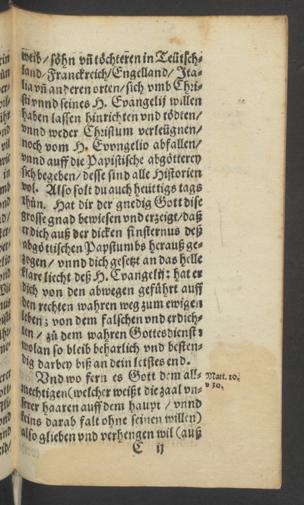 weib / söhn vñ töchteren in Teütsch-
land / Franckreich / Engelland / Ita-
lia vñ anderen orten / sich vmb Chri-
sti vnnd seines H. Evangelij willen
haben lassen hinrichten vnd tödten /
vnnd weder Christum verleügnen /
noch vom H. Evvngelio abfallen /
vnnd auff die Papistische abgötterey
sich begeben / desse sind alle Historien
vol. Also solt du auch heüttigs tags
thün. Hat dir der gnedig Gott dise
grosse gnad bewiesen vnd erzeigt / daß
er dich auß der dicken finsternus deß
abgöttischen Papstumbs herauß ge-
zogen / vnnd dich gesetzt an das helle
klare liecht deß H. Evangelij: hat er
dich von den abwegen geführt auff
den rechten wahren weg zum ewigen
leben; von dem falschen vnd erdich-
ten / zů dem wahren Gottesdienst:
wolan so bleib beharlich vnd besten-
dig darbey biß an dein letstes end.
Vnd wo fern es Gott dem all-
mechtigen (welcher weißt die zaal vn-
serer haaren auff dem haupt / vnnd
keins darab falt ohne seinen willen)
also glieben vnd verhengen wil (auß
C ij
Matt. 10.
v 30.